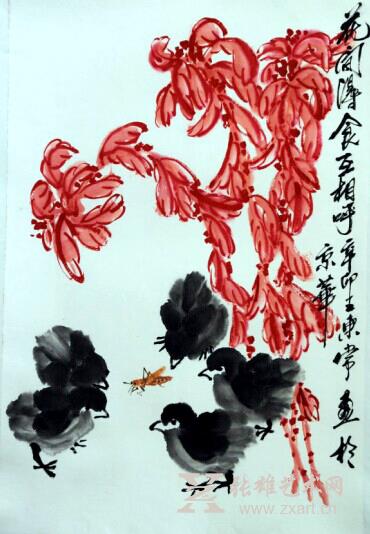 花间得食互相呼辛卯王东常画於
京華
张雄艺术网
www.zxart.cn